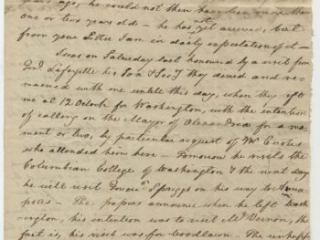 years ago, he could not then have been more than
one or two years old — he has not yet arrived, but
from your Letter I am in daily expectation of it —
I was on Saturday last honoured by a visit from
Genl Lafayette his Son & Secy they dined and re-
mained with me untill this day, when they left
me at 12 Oclock for Washington, with the intention
of calling on the Mayor of Alexandria for a mo-
ment or two, by particular request of Mr Custis
who attended him here — Tomorrow he visits the
Columbian College of Washington & the next day
he will visit on his way to Anna
polis — The papers announce when he left Wash-
ington, his intention was to visit Mt Vernon, the
fact is, his visit was for Woodlawn. The